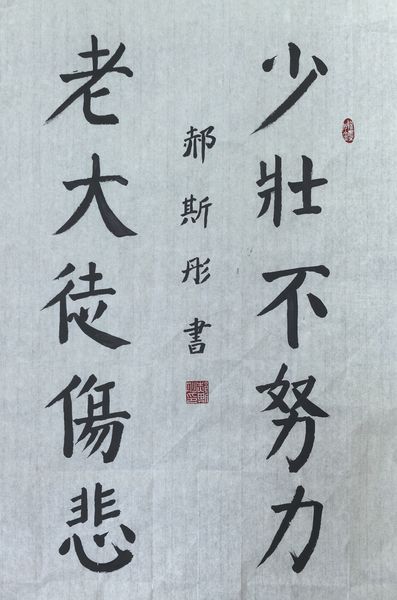 少壯不努力
老大徒傷悲
郝斯彤書